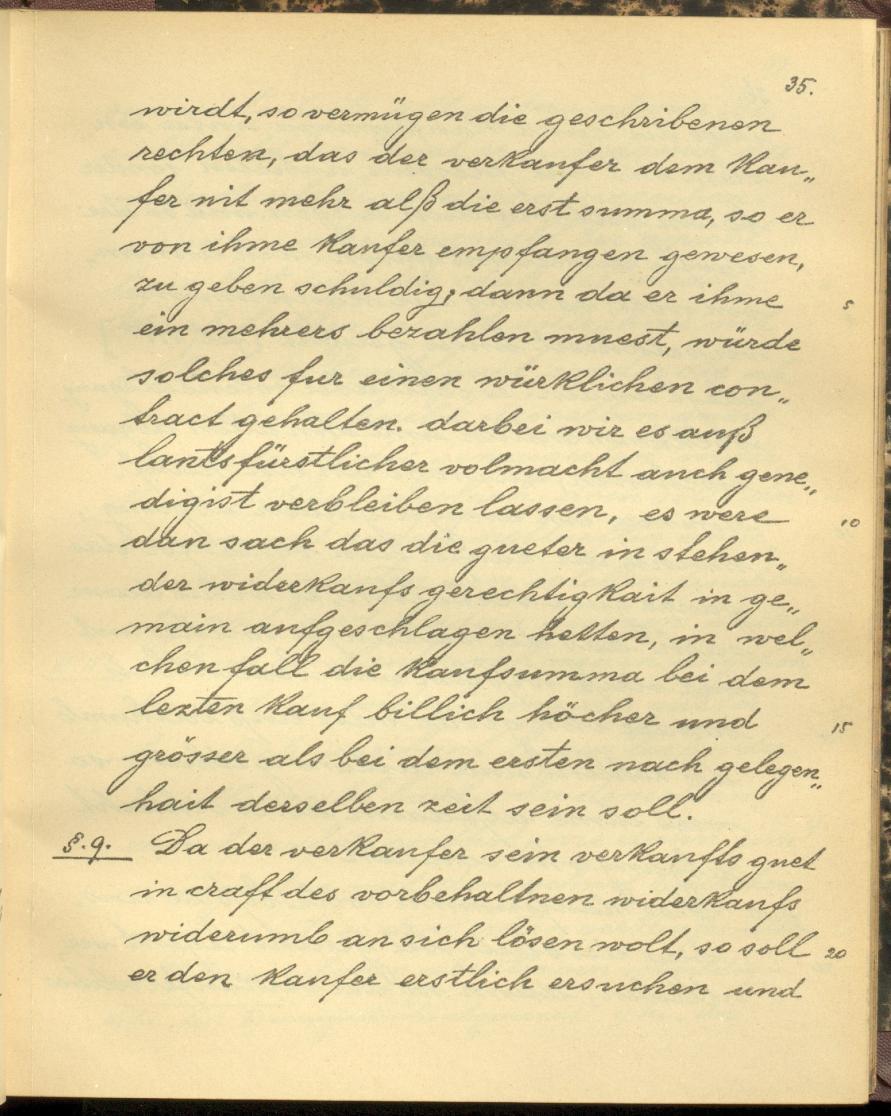 35.
wirdt, so vermügen die geschribenen
rechten, das der verkaufer dem kau„
fer nit mehr alß die erst summa, so er
von ihme kaufer empfangen gewesen,
zu geben schuldig; dann da er ihme 5
ein mehrers bezahlen muest, würde
solches fur einen würklichen con„
tract gehalten. darbei wir es auß
lantsfürstlicher volmacht auch gene„
digist verbleiben lassen, es were 10
dan sach das die gueter in stehen„
der widerkaufs gerechtigkait in ge„
main aufgeschlagen hetten, in wel„
chen fall die kaufsumma bei dem
lezten kauf billich höcher und 15
grösser als bei dem ersten nach gelegen„
hait derselben zeit sein soll.
§. 9. Da der verkaufer sein verkaufts guet
in craft des vorbehaltnen widerkaufs
widerumb an sich lösen wolt, so soll 20
er den kaufer erstlich ersuchen und